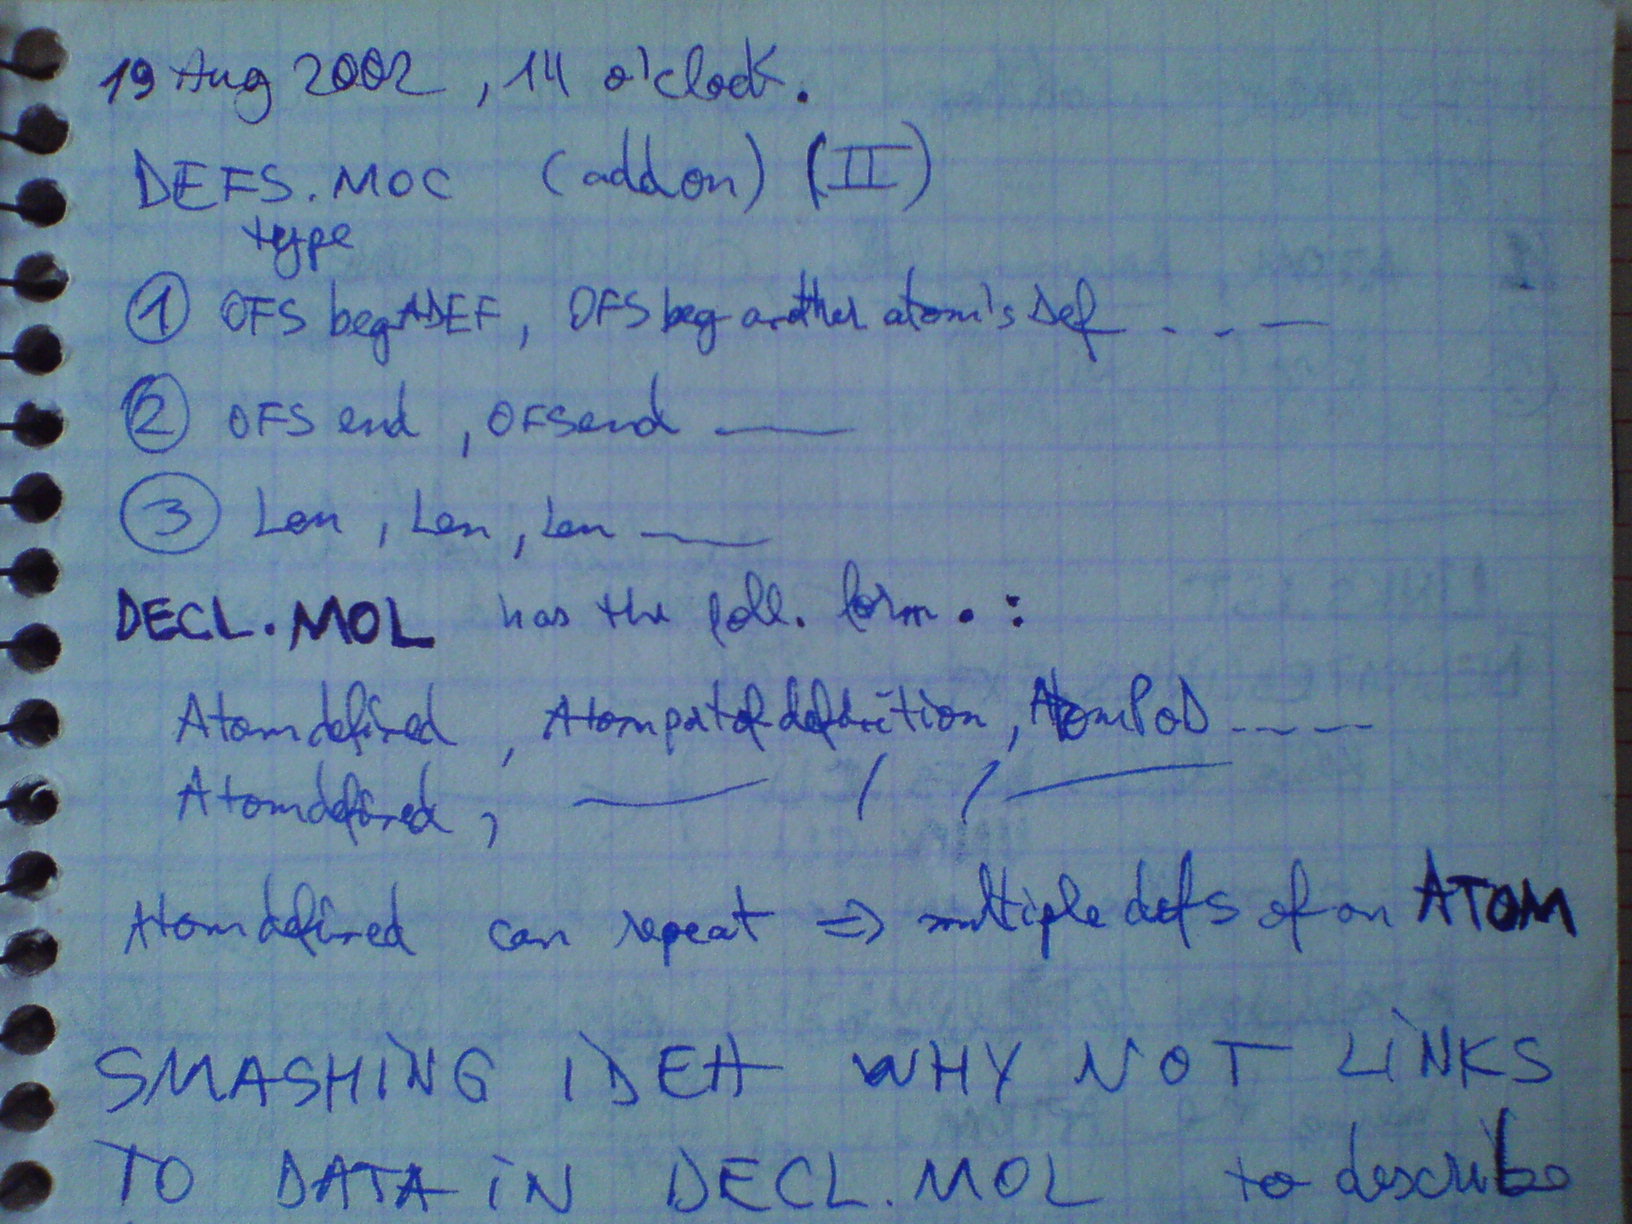 19 Aug 2002, 14 o'clock.
DEFS.MOC (addon) (II)
type
① OFS beg ADEF, OFS beg another atom's Def . . . —
② OFS end, OFSend ——
③ Len, Len, Len ——
DECL.MOL has the foll. form. :
Atomdefined, Atompartofdefinition, AtomPoD -----
Atomdefined, —— / / ——
Atomdefined can repeat => multiple defs of an ATOM
SMASHING IDEA WHY NOT LINKS
TO DATA IN DECL.MOL to describe